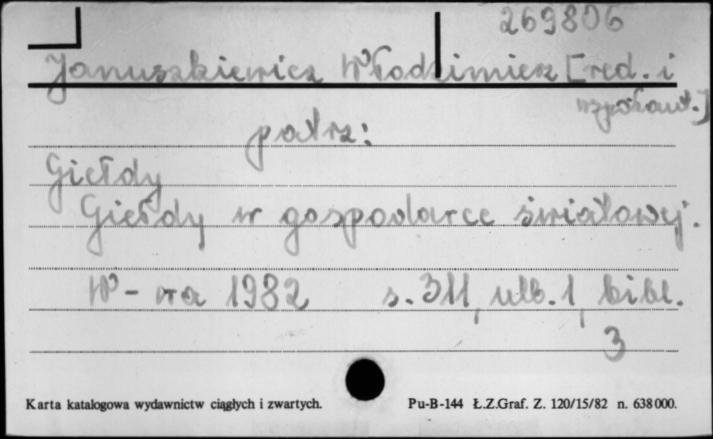 269806
Januszkiewicz Włodzimierz [red. i
współaut.]
patrz:
Giełdy
Giełdy w gospodarce światowej.
W-wa 1982 s. 311, nlb. 1, bibl.
3
Karta katalogowa wydawnictw ciągłych i zwartych. Pu-B-144 Ł.Z.Graf. Z. 120/15/82 n. 638000.